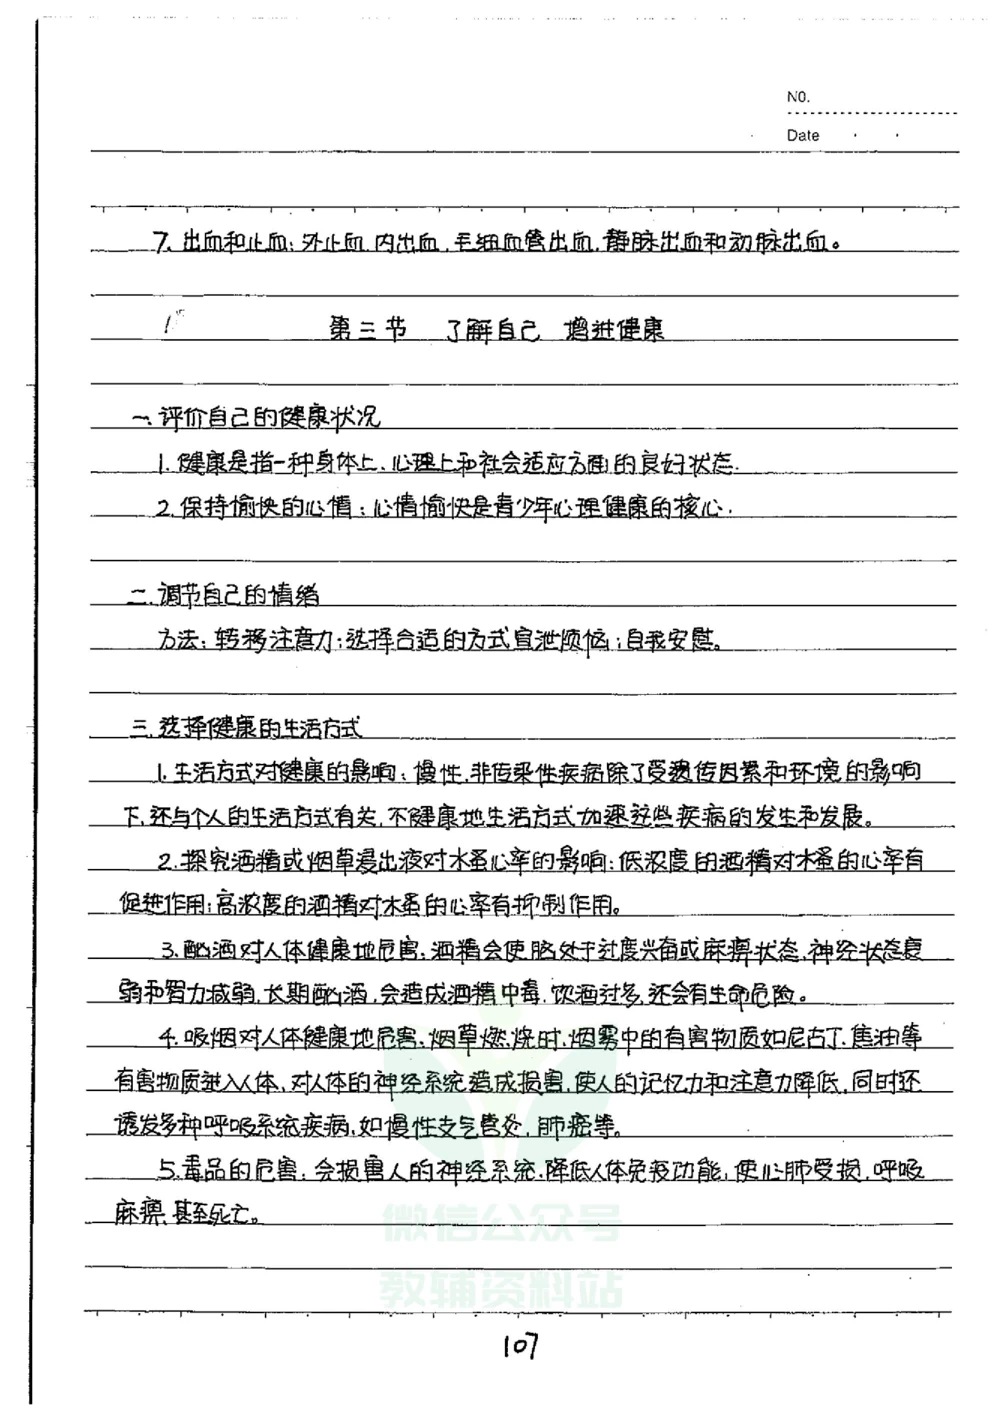 NO.
Date
7. 出血和止血：外止血、内出血、毛细血管出血、静脉出血和动脉出血。
第三节 了解自己 增进健康
一、评价自己的健康状况
1. 健康是指一种身体上、心理上和社会适应方面的良好状态.
2. 保持愉快的心情：心情愉快是青少年心理健康的核心.
二、调节自己的情绪
方法：转移注意力；选择合适的方式宣泄烦恼；自我安慰。
三、选择健康的生活方式
1. 生活方式对健康的影响：慢性、非传染性疾病除了受遗传因素和环境的影响
下，还与个人的生活方式有关，不健康地生活方式加速这些疾病的发生和发展。
2. 探究酒精或烟草浸出液对水蚤心率的影响：低浓度的酒精对水蚤的心率有
促进作用；高浓度的酒精对水蚤的心率有抑制作用。
3. 酗酒对人体健康地危害：酒精会使脑处于过度兴奋或麻痹状态，神经状态衰
弱和智力减弱，长期酗酒，会造成酒精中毒，饮酒过多，还会有生命危险。
4. 吸烟对人体健康地危害，烟草燃烧时，烟雾中的有害物质如尼古丁、焦油等
有害物质进入人体，对人体的神经系统造成损害，使人的记忆力和注意力降低，同时还
诱发多种呼吸系统疾病，如慢性支气管炎，肺癌等。
5. 毒品的危害：会损害人的神经系统，降低人体免疫功能，使心肺受损，呼吸
麻痹，甚至死亡。
微信公众号
教辅资料站
107